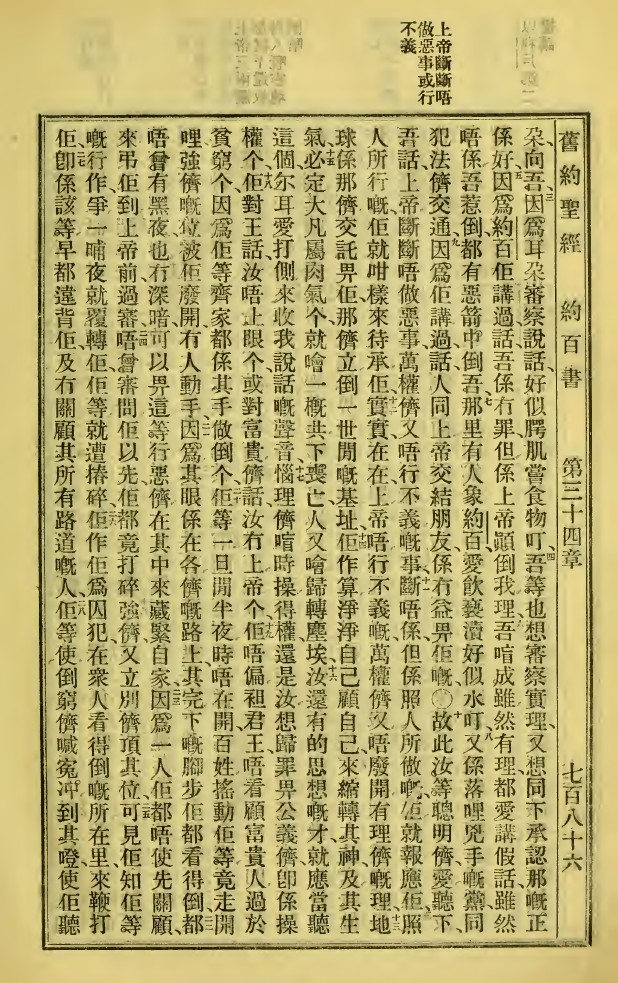 上帝斷斷唔
做惡事或行
不義
舊約聖經 約百書 第三十四章 七百八十六
朶向吾、三因爲耳朶審察說話、好似腭肌嘗食物吖、四吾等也想審察實理、又想同下承認那嘅正
係好、五因爲約百佢講過話、吾係冇罪、但係上帝顛倒我理、六吾喧成雖然有理、都愛講假話、雖然
唔係吾惹倒、都有惡箭中倒吾、七那里有人象約百、愛飮褻瀆好似水吖、八又係落哩兇手嘅黨、同
犯法儕交通、九因爲佢講過話、人同上帝交結朋友、係冇益畀佢嘅〇十故此汝等聰明儕愛聽下
吾話、上帝斷斷唔做惡事、萬權儕又唔行不義嘅事、十一斷唔係、但係照人所做嘅、佢就報應佢、照
人所行嘅、佢就咁樣來待承佢、十二實實在在上帝唔行不義嘅、萬權儕又唔廢開有理儕嘅理、十三地
球係那儕交託畀佢、那儕立倒一世間嘅基址、十四佢作算淨淨自己顧自己、來縮轉其神及其生
氣、十五必定大凡屬肉氣个、就噲一槪共下喪亡、人又噲歸轉塵埃、十六汝還有的思想嘅才、就應當聽
這個、尔耳愛打側來收我說話嘅聲音、十七惱理儕喧時操得權、還是汝想歸罪畀公義儕、卽係操
權个、十八佢對王話、汝唔止眼个、或對富貴儕話、汝冇上帝个、十九佢唔偏袒君王、唔看顧富貴人過於
貧窮个、因爲佢等齊家都係其手做倒个、二十佢等一旦間半夜時唔在開、百姓搖動、佢等竟走開
哩、強儕嘅位被佢廢開、冇人動手、二一因爲其眼係在各儕嘅路上、其完下嘅腳步佢都看得倒、二二都
唔曾有黑夜、也冇深暗、可以畀這等行惡儕、在其中來藏緊自家、二三因爲一人佢都唔使先關顧、
來弔佢到上帝前過審、二四唔曾審問佢以先、佢都竟打碎強儕、又立別儕頂其位、二五可見佢知佢等
嘅行作、爭一晡夜就覆轉佢、佢等就遭摏碎、二六佢作佢爲囚犯、在衆人看得倒嘅所在里來鞭打
佢、二七卽係該等早都違背佢、及冇關顧其所有路道嘅人、二八佢等使倒窮儕喊冤、冲到其嶝、使佢聽